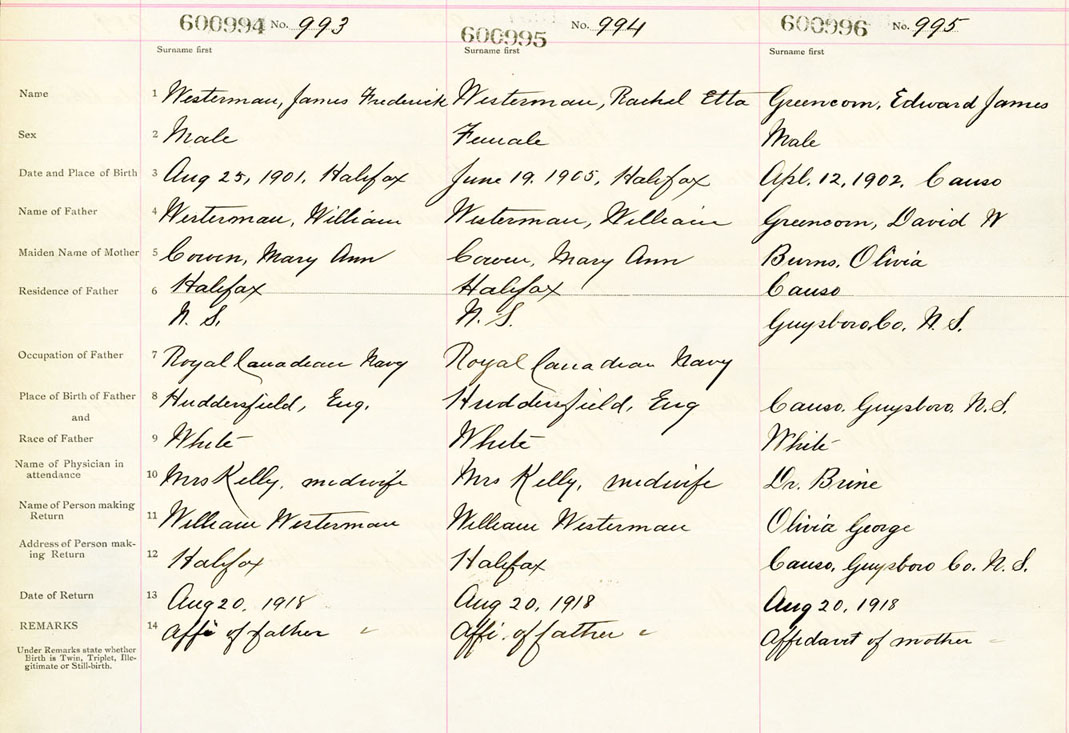 600994 No. 993 600995 No. 994 600996 No. 995
Surname first Surname first Surname first
Name 1 Westerman, James Frederick Westerman, Rachel Etta Greencorn, Edward James
Sex 2 Male Female Male
Date and Place of Birth 3 Aug 25, 1901. Halifax June 19. 1905, Halifax Apl. 12, 1902. Canso
Name of Father 4 Westerman, William Westerman, William Greencorn, David W
Maiden Name of Mother 5 Cowen, Mary Ann Cowen, Mary Ann Burns, Olivia
Residence of Father 6 Halifax Halifax Canso
N. S. N. S. Guysboro Co. N. S.
Occupation of Father 7 Royal Canadian Navy Royal Canadian Navy
Place of Birth of Father 8 Huddersfield, Eng. Huddersfield, Eng Canso, Guysboro, N. S.
and
Race of Father 9 White White White
Name of Physician in
attendance 10 Mrs Kelly, midwife Mrs Kelly, midwife Dr. Brine
Name of Person making
Return 11 William Westerman William Westerman Olivia George
Address of Person mak-
ing Return 12 Halifax Halifax Canso, Guysboro Co. N. S.
Date of Return 13 Aug 20, 1918 Aug 20, 1918 Aug 20, 1918
REMARKS 14 Affi of father Affi. of father Affidavit of mother
Under Remarks state whether
Birth is Twin, Triplet, Ille-
gitimate or Still-birth.